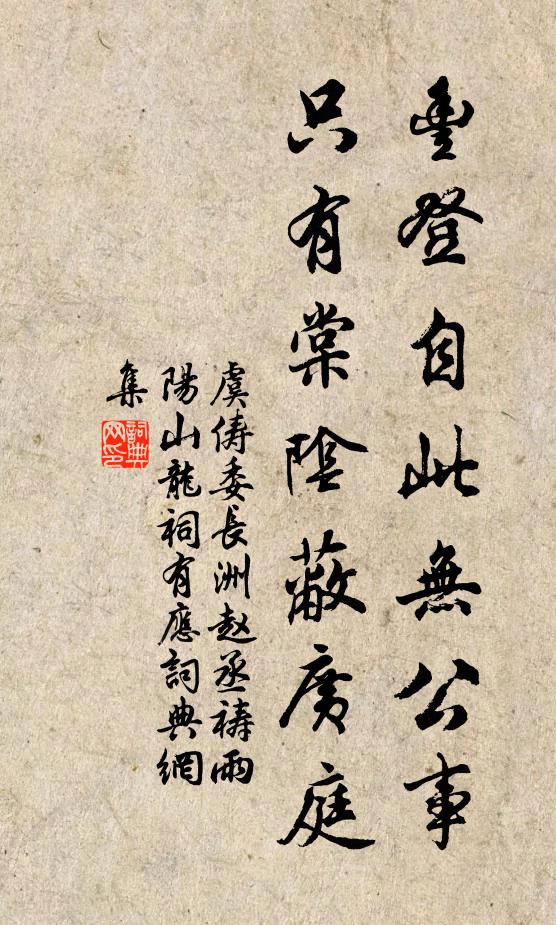 豊登自此無公事
只有棠陰蔽廣庭
虞儔委長洲赵丞禱雨
陽山龍祠有應詞典網
集
詞典網印